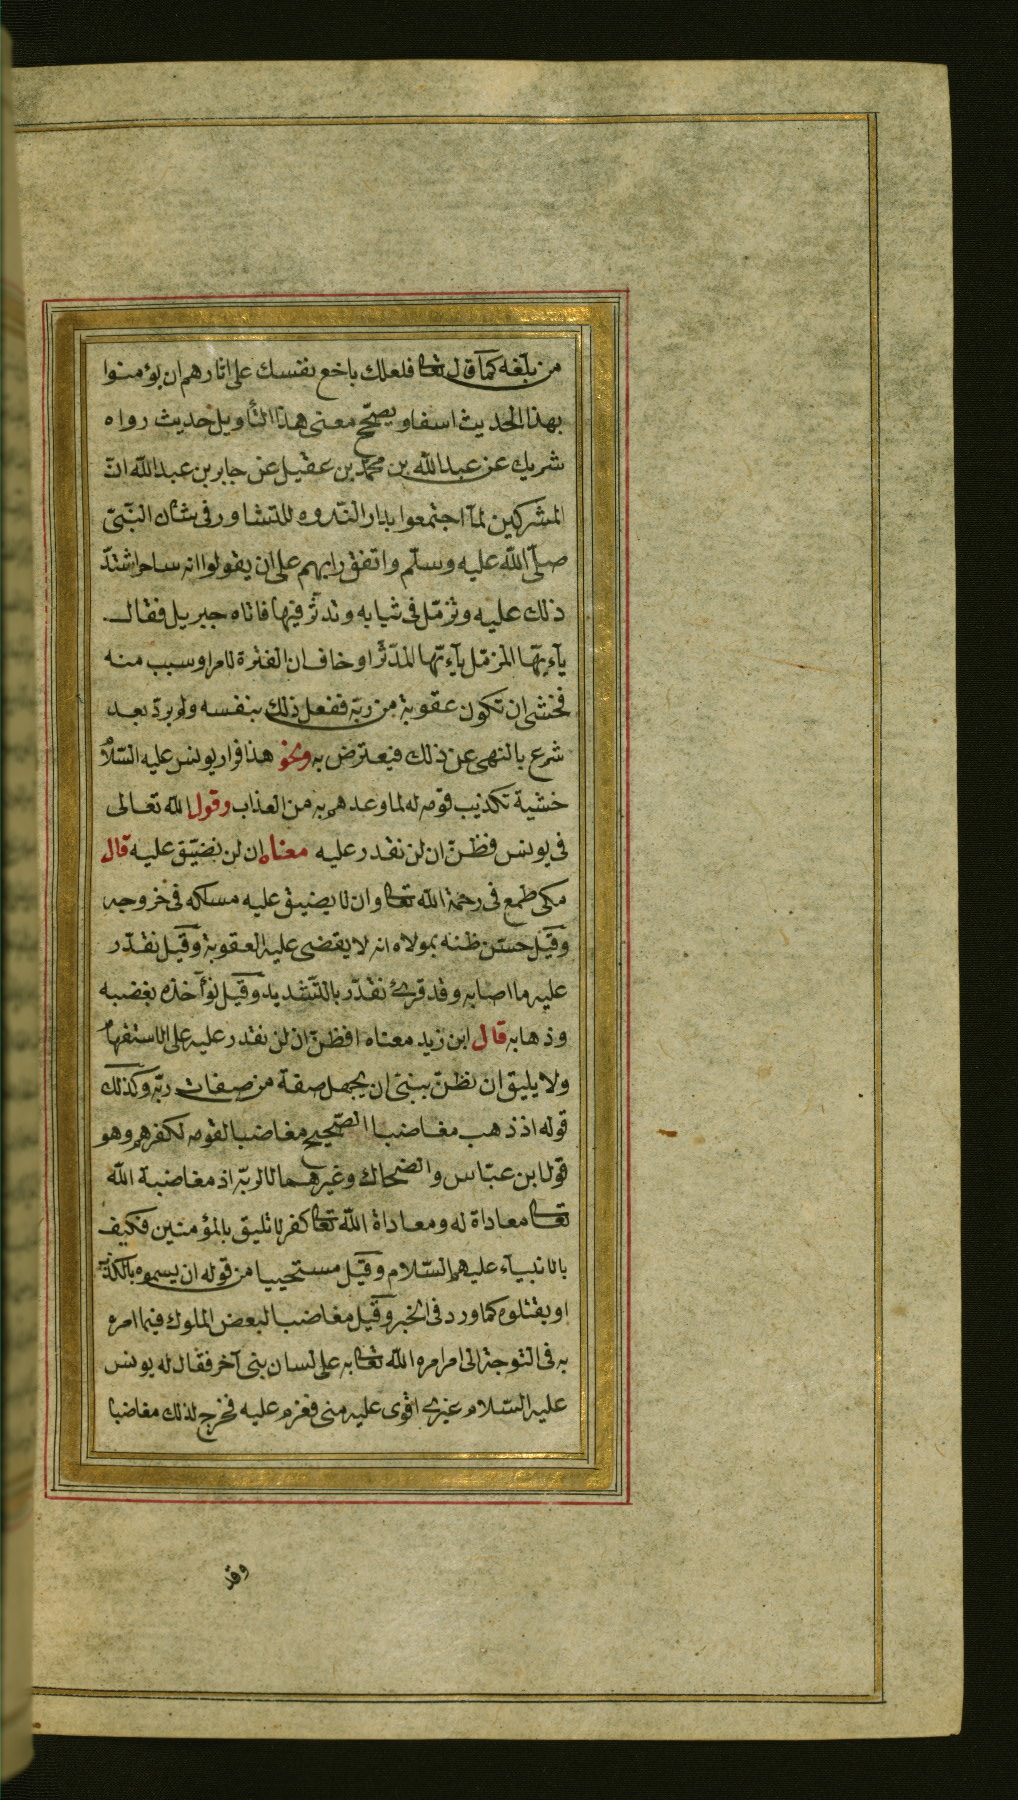 من بلغه كما قال تعا فلعلك باخع نفسك على اثارهم ان يؤمنوا
بهذا الحديث اسفا ويصحّح معنى هذا التأويل حديث رواه
شريك عن عبدالله بن محمّد بن عقيل عن جابر بن عبدالله انّ
المشركين لمآ اجتمعوا بدار النّدوه للتشاور فى شان النّبىّ
صلّى الله عليه وسلّم واتفق رايهم على ان يقولوا انه ساحر اشتدّ
ذلك عليه وتزمّل فى ثيابه وتدثّر فيها فاتاه جبريل فقال
يآءيّها المزمّل يآءيّها المدّثّر او خاف ان الفترة لامر او سبب منه
فخشى ان تكون عقوبة من ربّه ففعل ذلك بنفسه ولم يرد بعد
شرع بالنهى عن ذلك فيعترض به ونحو هذا فرار يونس عليه السّلام
خشية تكذيب قومه له لما وعدهم به من العذاب وقول الله تعالى
فى يونس فظنّ ان لن نقدر عليه معناه ان لن نضيّق عليه قال
مكى طمع فى رحمة الله تعا وان لا يضيق عليه مسلكه فى خروجه
وقيل حسّن ظنه بمولاه انه لا يقضى عليه العقوبة وقيل نقدّر
عليه ما اصابه وقد قرئ نقدّر بالتّشديد وقيل نؤآخذه بغضبه
وذهابه قال ابن زيد معناه افظنّ ان لن نقدر عليه على الاستفهام
ولا يليق ان نظنّ بنبىّ ان يجهل صفة من صفات ربّه وكذلك
قوله اذ ذهب مغاضبا الصّحيح مغاضبا لقومه لكفرهم وهو
قول ابن عبّاس والضحاك وغيرهما لا لربّه اذ مغاضبة الله
تعا معاداة له ومعاداة الله تعا كفر لا تليق بالمؤمنين فكيف
بالانبيآء عليهم السّلام وقيل مستحييا من قومه ان يسموه بالكذب
او يقتلوه كما ورد فى الخبر وقيل مغاضبا لبعض الملوك فيما امره
به فى التوجة الى امر امره الله تعا به على لسان نبى آخر فقال له يونس
عليه السّلام غيرى اقوى عليه منى فعزم عليه فخرج لذلك مغاضبا
وقد